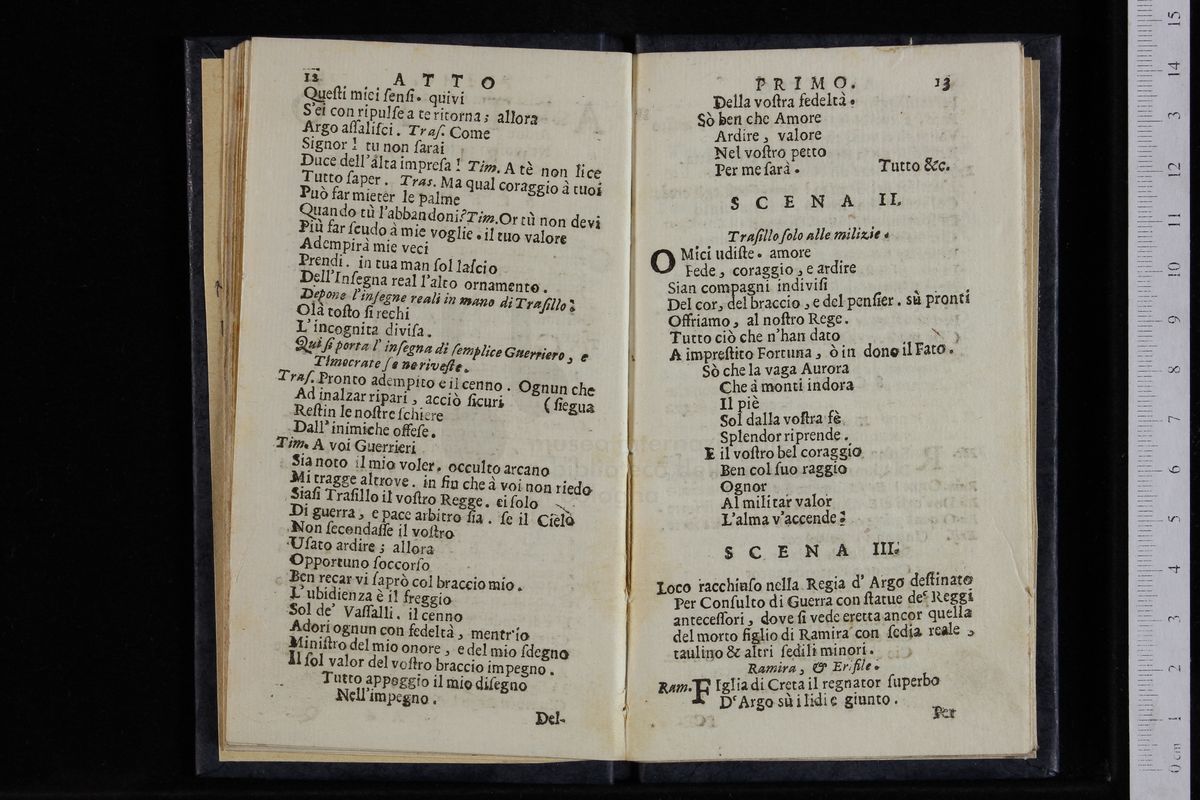 12 ATTO
Queſti mici ſenſi. quivi
S'ei con ripulſe a te ritorna; allora
Argo aſſaliſci. Traſ. Come
Signor! tu non ſarai
Duce dell'alta impreſa! Tim. A tè non lice
Tutto ſaper. Tras. Ma qual coraggio à tuoi
Può far mieter le palme
Quando tù l'abbandoni? Tim. Or tù non devi
Più far ſcudo à mie voglie. il tuo valore
Adempirà mie veci
Prendi. in tua man ſol laſcio
Dell'Inſegna real l'alto ornamento.
Depone l'inſegne reali in mano di Traſillo.
Olà toſto ſi rechi
L'incognita diviſa.
Quì ſi porta l'inſegna di ſemplice Guerriero, e
Timocrate ſe ne riveſte.
Traſ. Pronto adempito e il cenno. Ognun che
Ad inalzar ripari, acciò ſicuri (ſiegua
Reſtin le noſtre ſchiere
Dall'inimiche offeſe.
Tim. A voi Guerrieri
Sia noto il mio voler. occulto arcano
Mi tragge altrove. in fin che à voi non riedo
Siaſi Traſillo il voſtro Regge. ei ſolo
Di guerra, e pace arbitro ſia. ſe il Cielo
Non ſecondaſſe il voſtro
Uſato ardire; allora
Opportuno ſoccorſo
Ben recar vi ſaprò col braccio mio.
L'ubidienza è il freggio
Sol de' Vaſſalli. il cenno
Adori ognun con fedeltà, mentr'io
Miniſtro del mio onore, e del mio ſdegno
Il ſol valor del voſtro braccio impegno.
Tutto appoggio il mio diſegno
Nell'impegno.
Del-
PRIMO. 13
Della voſtra fedeltà.
Sò ben che Amore
Ardire, valore
Nel voſtro petto
Per me ſarà. Tutto &c.
SCENA II.
Traſillo ſolo alle milizie.
OMici udiſte. amore
Fede, coraggio, e ardire
Sian compagni indiviſi
Del cor, del braccio, e del penſier. sù pronti
Offriamo, al noſtro Rege.
Tutto ciò che n'han dato
A impreſtito Fortuna, ò in dono il Fato.
Sò che la vaga Aurora
Che à monti indora
Il piè
Sol dalla voſtra fè
Splendor riprende.
E il voſtro bel coraggio
Ben col ſuo raggio
Ognor
Al militar valor
L'alma v'accende.
SCENA III.
Loco racchiuſo nella Regia d'Argo deſtinato
Per Conſulto di Guerra con ſtatue de' Reggi
anteceſſori, dove ſi vede eretta ancor quella
del morto figlio di Ramira con ſedia reale,
taulino & altri ſedili minori.
Ramira, & Erifile.
Ram. FIglia di Creta il regnator ſuperbo
D'Argo sù i lidi e giunto.
Per
0 cm 1 2 3 4 5 6 7 8 9 10 11 12 13 14 15